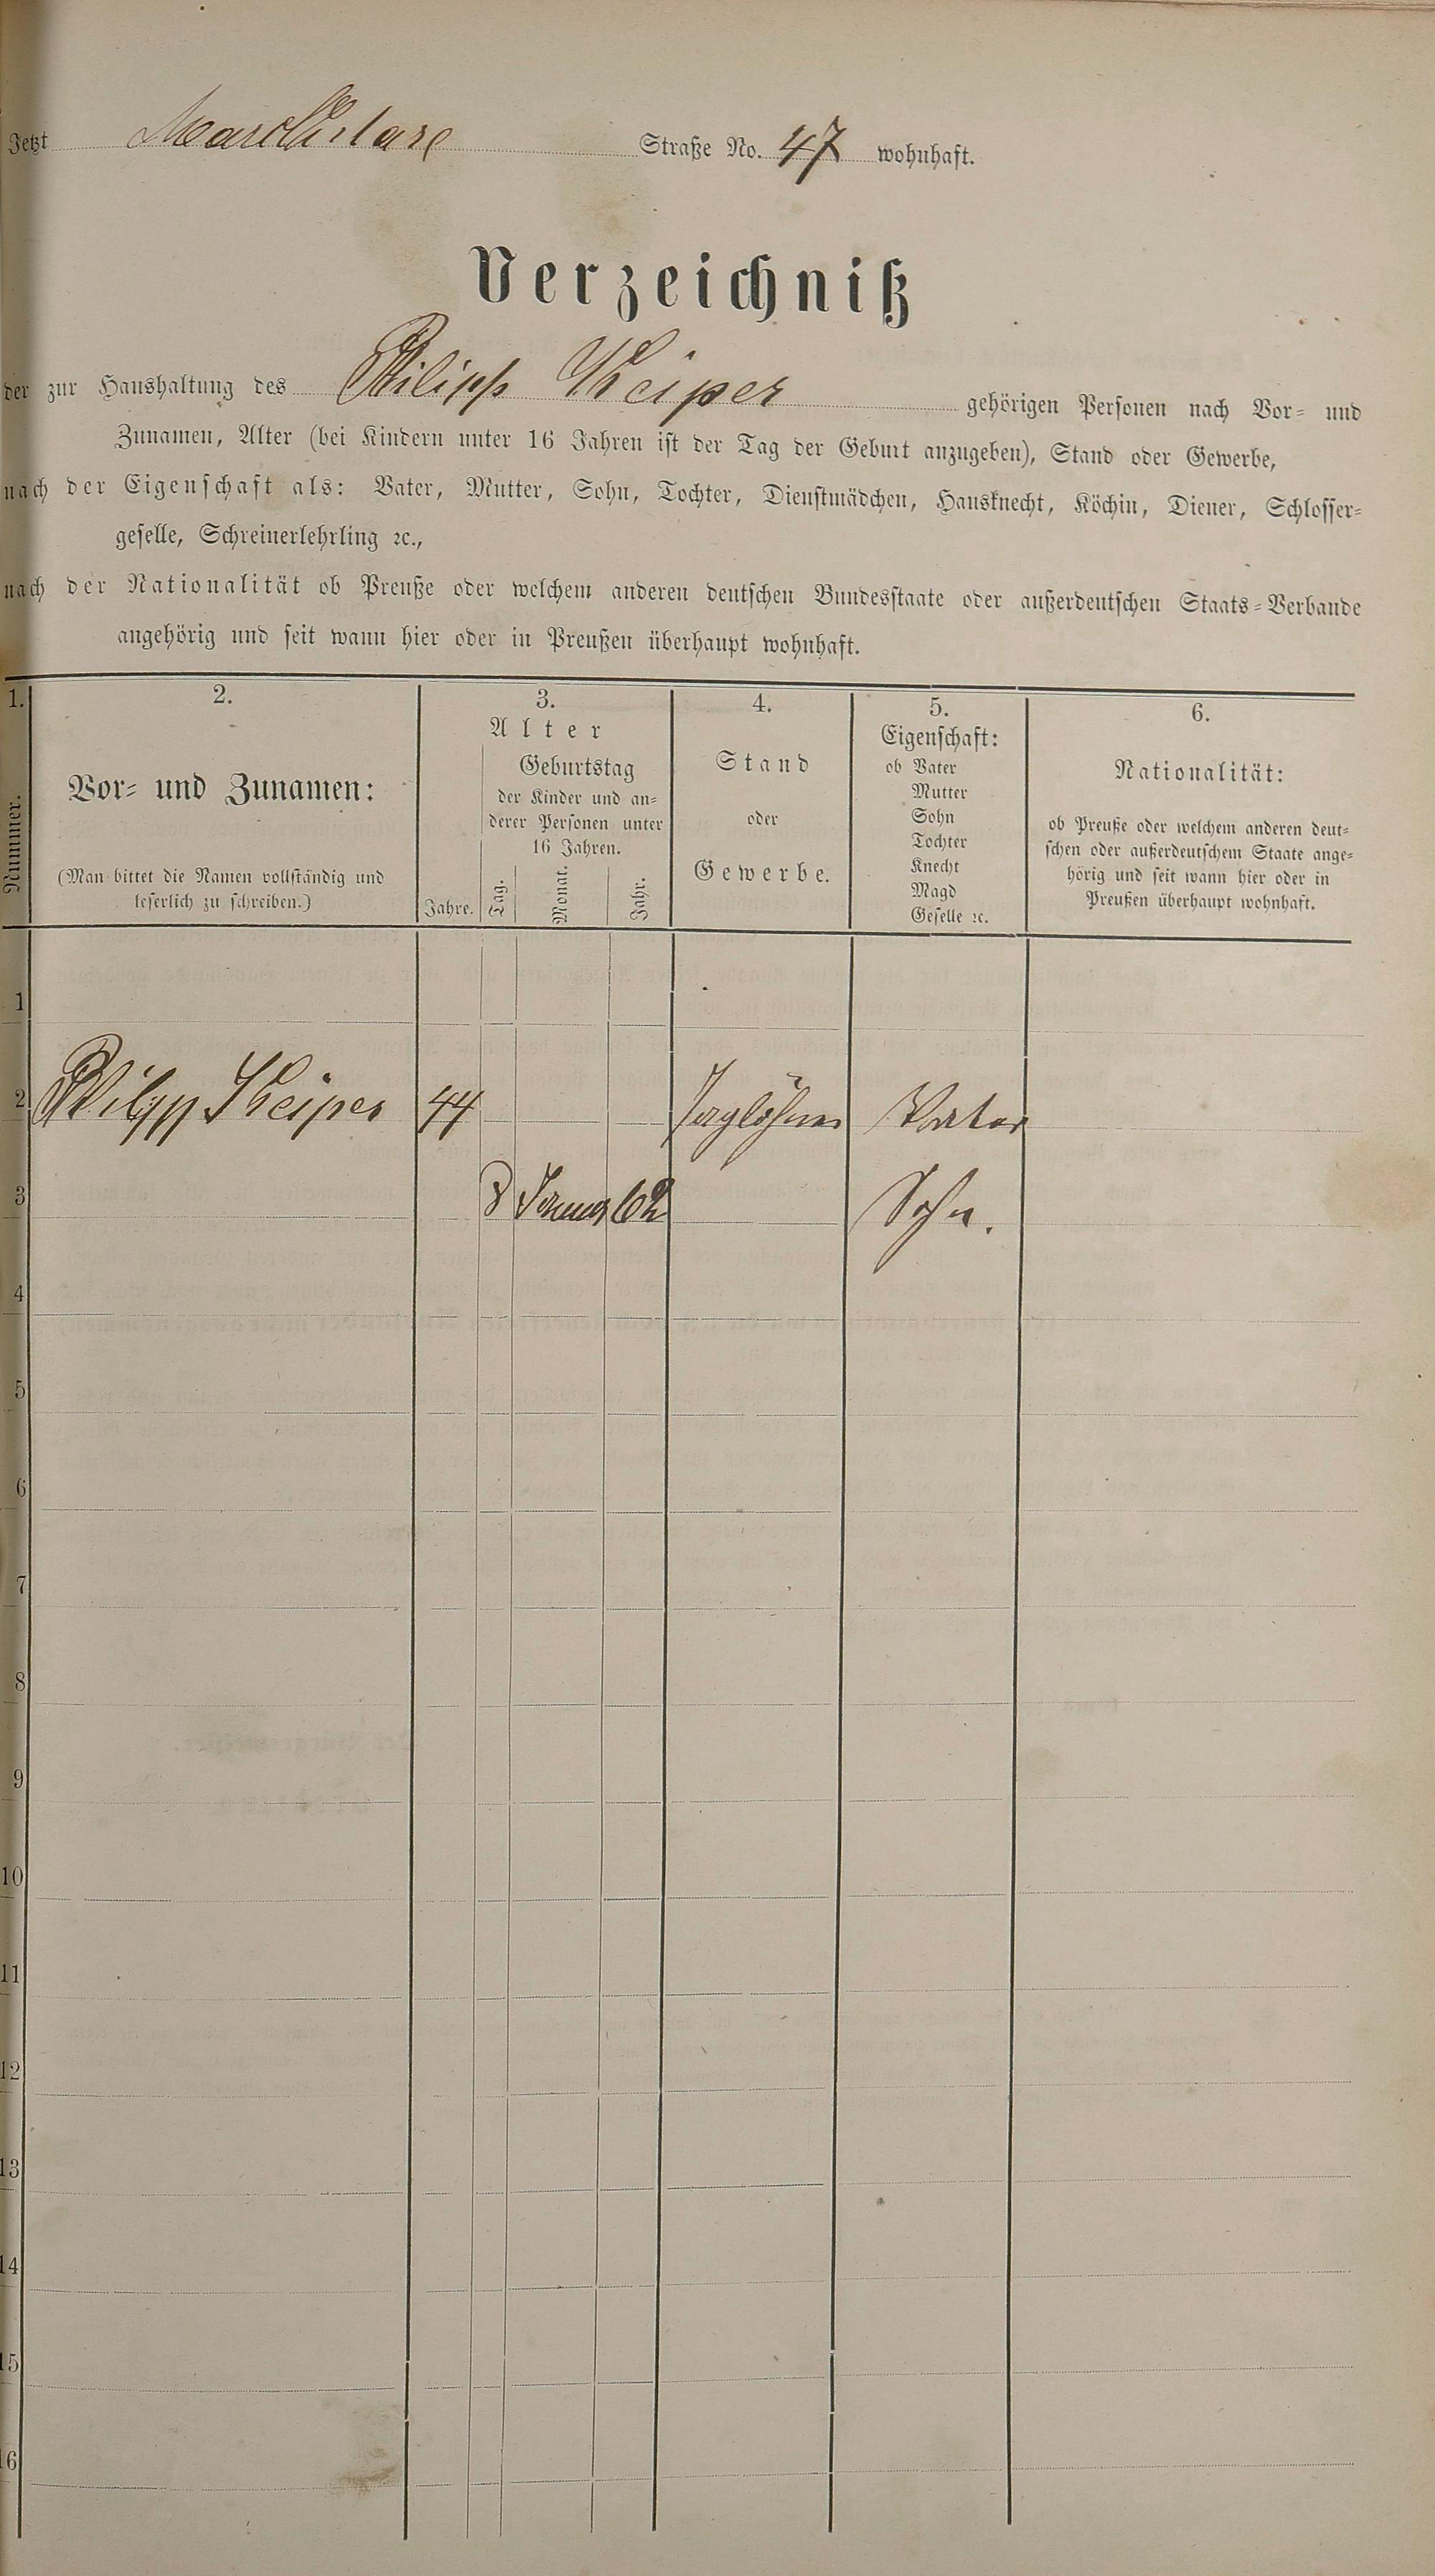 Jetzt Straße No. 47 wohnhaft.
Verzeichniß
der zur Haushaltung des Philipp Keiper gehörigen Personen nach Vor- und
Zunamen, Alter (bei Kindern unter 16 Jahren ist der Tag der Geburt anzugeben), Stand oder Gewerbe,
nach der Eigenschaft als: Vater, Mutter, Sohn, Tochter, Dienstmädchen, Hausknecht, Köchin, Diener, Schlosser-
geselle, Schreinerlehrling ꝛc.,
nach der Nationalität ob Preuße oder welchem anderen deutschen Bundesstaate oder außerdeutschen Staats-Verbande
angehörig und seit wann hier oder in Preußen überhaupt wohnhaft.
1.
Nummer.
2.
Vor- und Zunamen:
(Man bittet die Namen vollständig und
leserlich zu schreiben.)
3.
Alter
Jahre.
Geburtstag
der Kinder und an-
derer Personen unter
16 Jahren.
Tag.
Monat.
Jahr.
4.
Stand
oder
Gewerbe.
5.
Eigenschaft:
ob Vater
Mutter
Sohn
Tochter
Knecht
Magd
Geselle ꝛc.
6.
Nationalität:
ob Preuße oder welchem anderen deut-
schen oder außerdeutschem Staate ange-
hörig und seit wann hier oder in
Preußen überhaupt wohnhaft.
1
2 Philipp Keiper 44 Taglöhner Vater
3 8 Januar 62 Sohn.
4
5
6
7
8
9
10
11
12
13
14
15
16